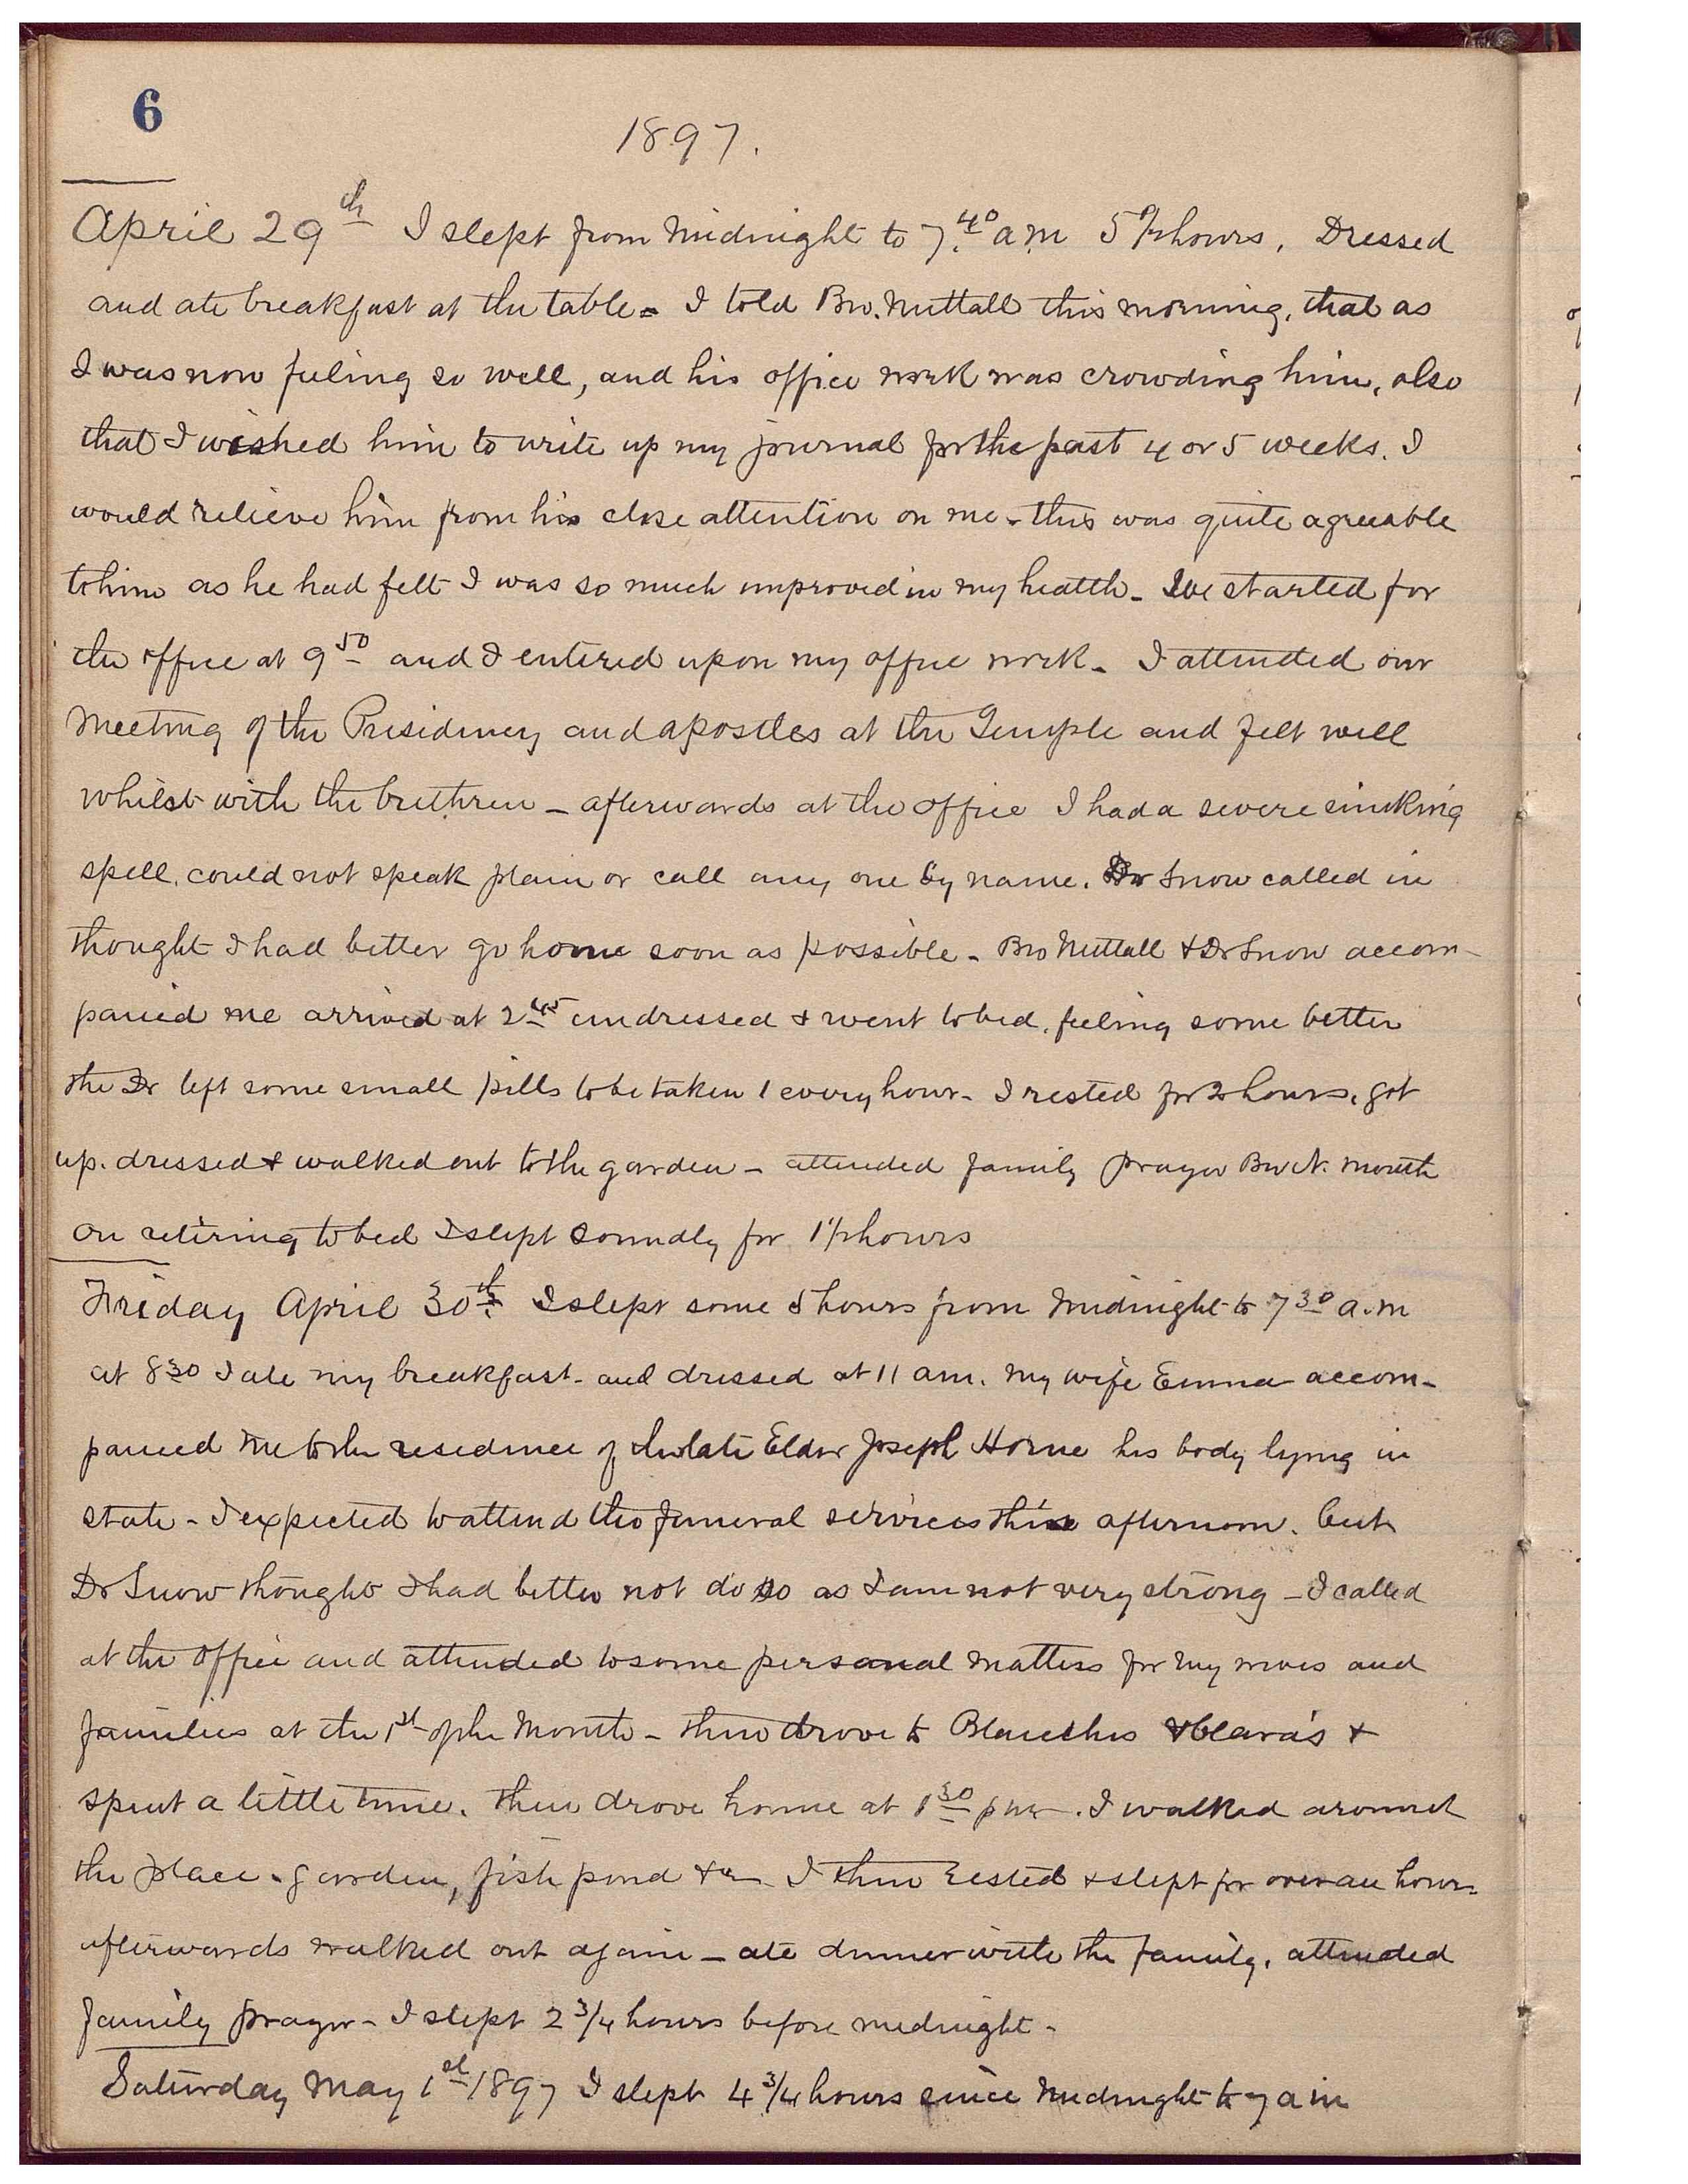 6
1897.
April 29th I slept from Midnight to 7.40 a.m 5 1/2 hours. Dressed
and ate breakfast at the table = I told Bro. Nuttall this morning, that as
I was now feeling so well, and his office work was crowding him, also
that I wished him to write up my journal for the past 4 or 5 weeks. I
would relieve him from his close attention on me - this was quite agreeable
to him as he had felt I was so much improved in my health - We started for
the office at 9 50 and I entered upon my office work - I attended our
Meeting of the Presidency and apostles at the Temple and felt well
whilst with the brethren - afterwards at the office I had a severe sinking
spell, could not speak plain or call any one by name. Dr Snow called in
thought I had better go home soon as possible - Bro Nuttall & Dr Snow accom-
panied me arrived at 2 45 undressed & went to bed, feeling some better
the Dr left some small pills to be taken 1 every hour - I rested for 2 hours, got
up. dressed & walked out to the garden - attended family prayer Bro N. mouth
on retiring to bed I slept soundly for 1 1/2 hours
Friday April 30th. I slept some 5 hours from Midnight to 7 30 a.m
at 8 30 I ate my breakfast - and dressed at 11 am. My wife Emma accom-
panied me to the residence of the late Elder Joseph Horne his body lying in
state - I expected to attend the funeral services this afternoon. but
Dr Snow thought I had better not do so as I am not very strong - I called
at the office and attended to some personal matters for my wives and
families at the 1st of the Month - then drove to Blanches & Clara's &
spent a little time. then drove home at 1 30 pm. I walked around
the place - garden, fish pond &c I then rested & slept for over an hour -
afterwards walked out again - ate dinner with the family. attended
family prayer - I slept 2 3/4 hours before midnight -
Saturday May 1st 1897 I slept 4 3/4 hours since Midnight to 7 am